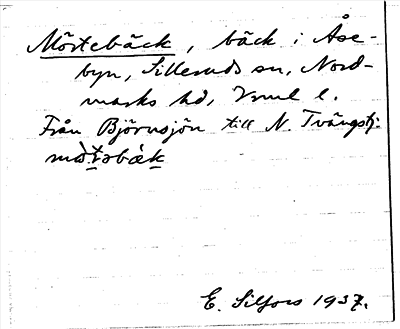 Mörtebäck, bäck i Åse-
byn, Silleruds sn, Nord-
marks hd, Vrml l.
Från Björnsjön till N. Tvängstj:
E. Silfors 1937.